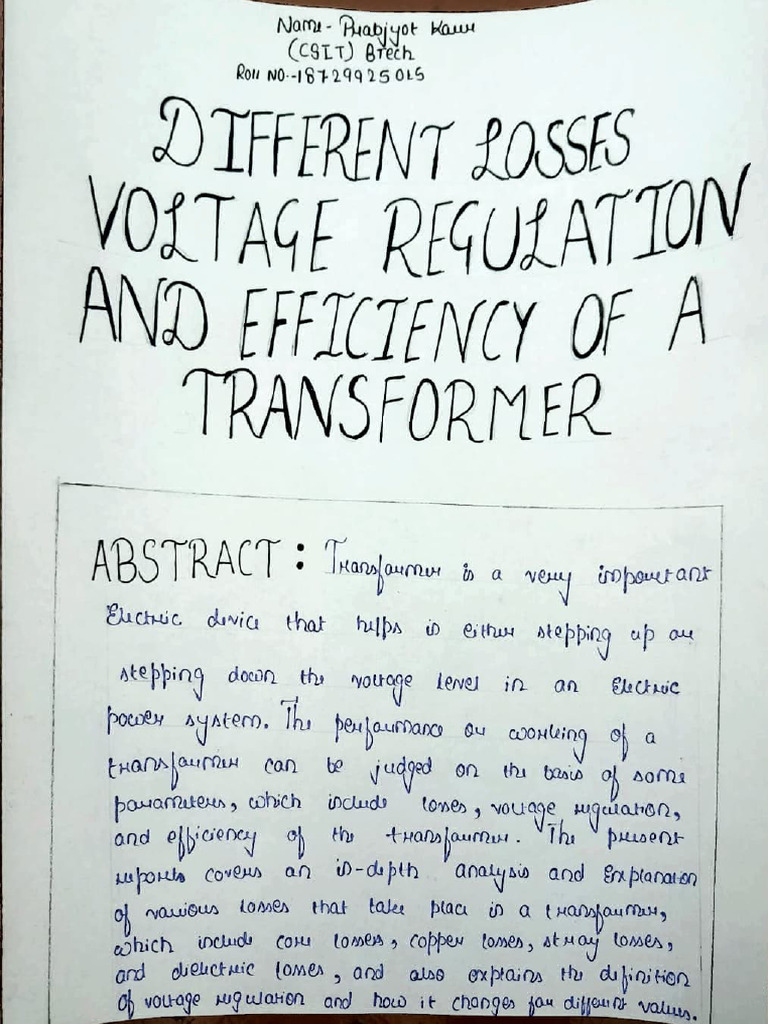 Name- Prabjyot Kaur
(CSIT) BTech
Roll NO.-18729925015
DIFFERENT LOSSES
VOLTAGE REGULATION
AND EFFICIENCY OF A
TRANSFORMER
ABSTRACT : Transformer is a very important
Electric device that helps in either stepping up or
stepping down the voltage level in an Electric
power system. The performance or working of a
transformer can be judged on the basis of some
parameters, which include losses, voltage regulation,
and efficiency of the transformer. The present
reports covers an in-depth analysis and Explanation
of various losses that take place in a transformer,
which include core losses, copper losses, stray losses,
and dielectric losses, and also explains the definition
of voltage regulation and how it changes for different values.